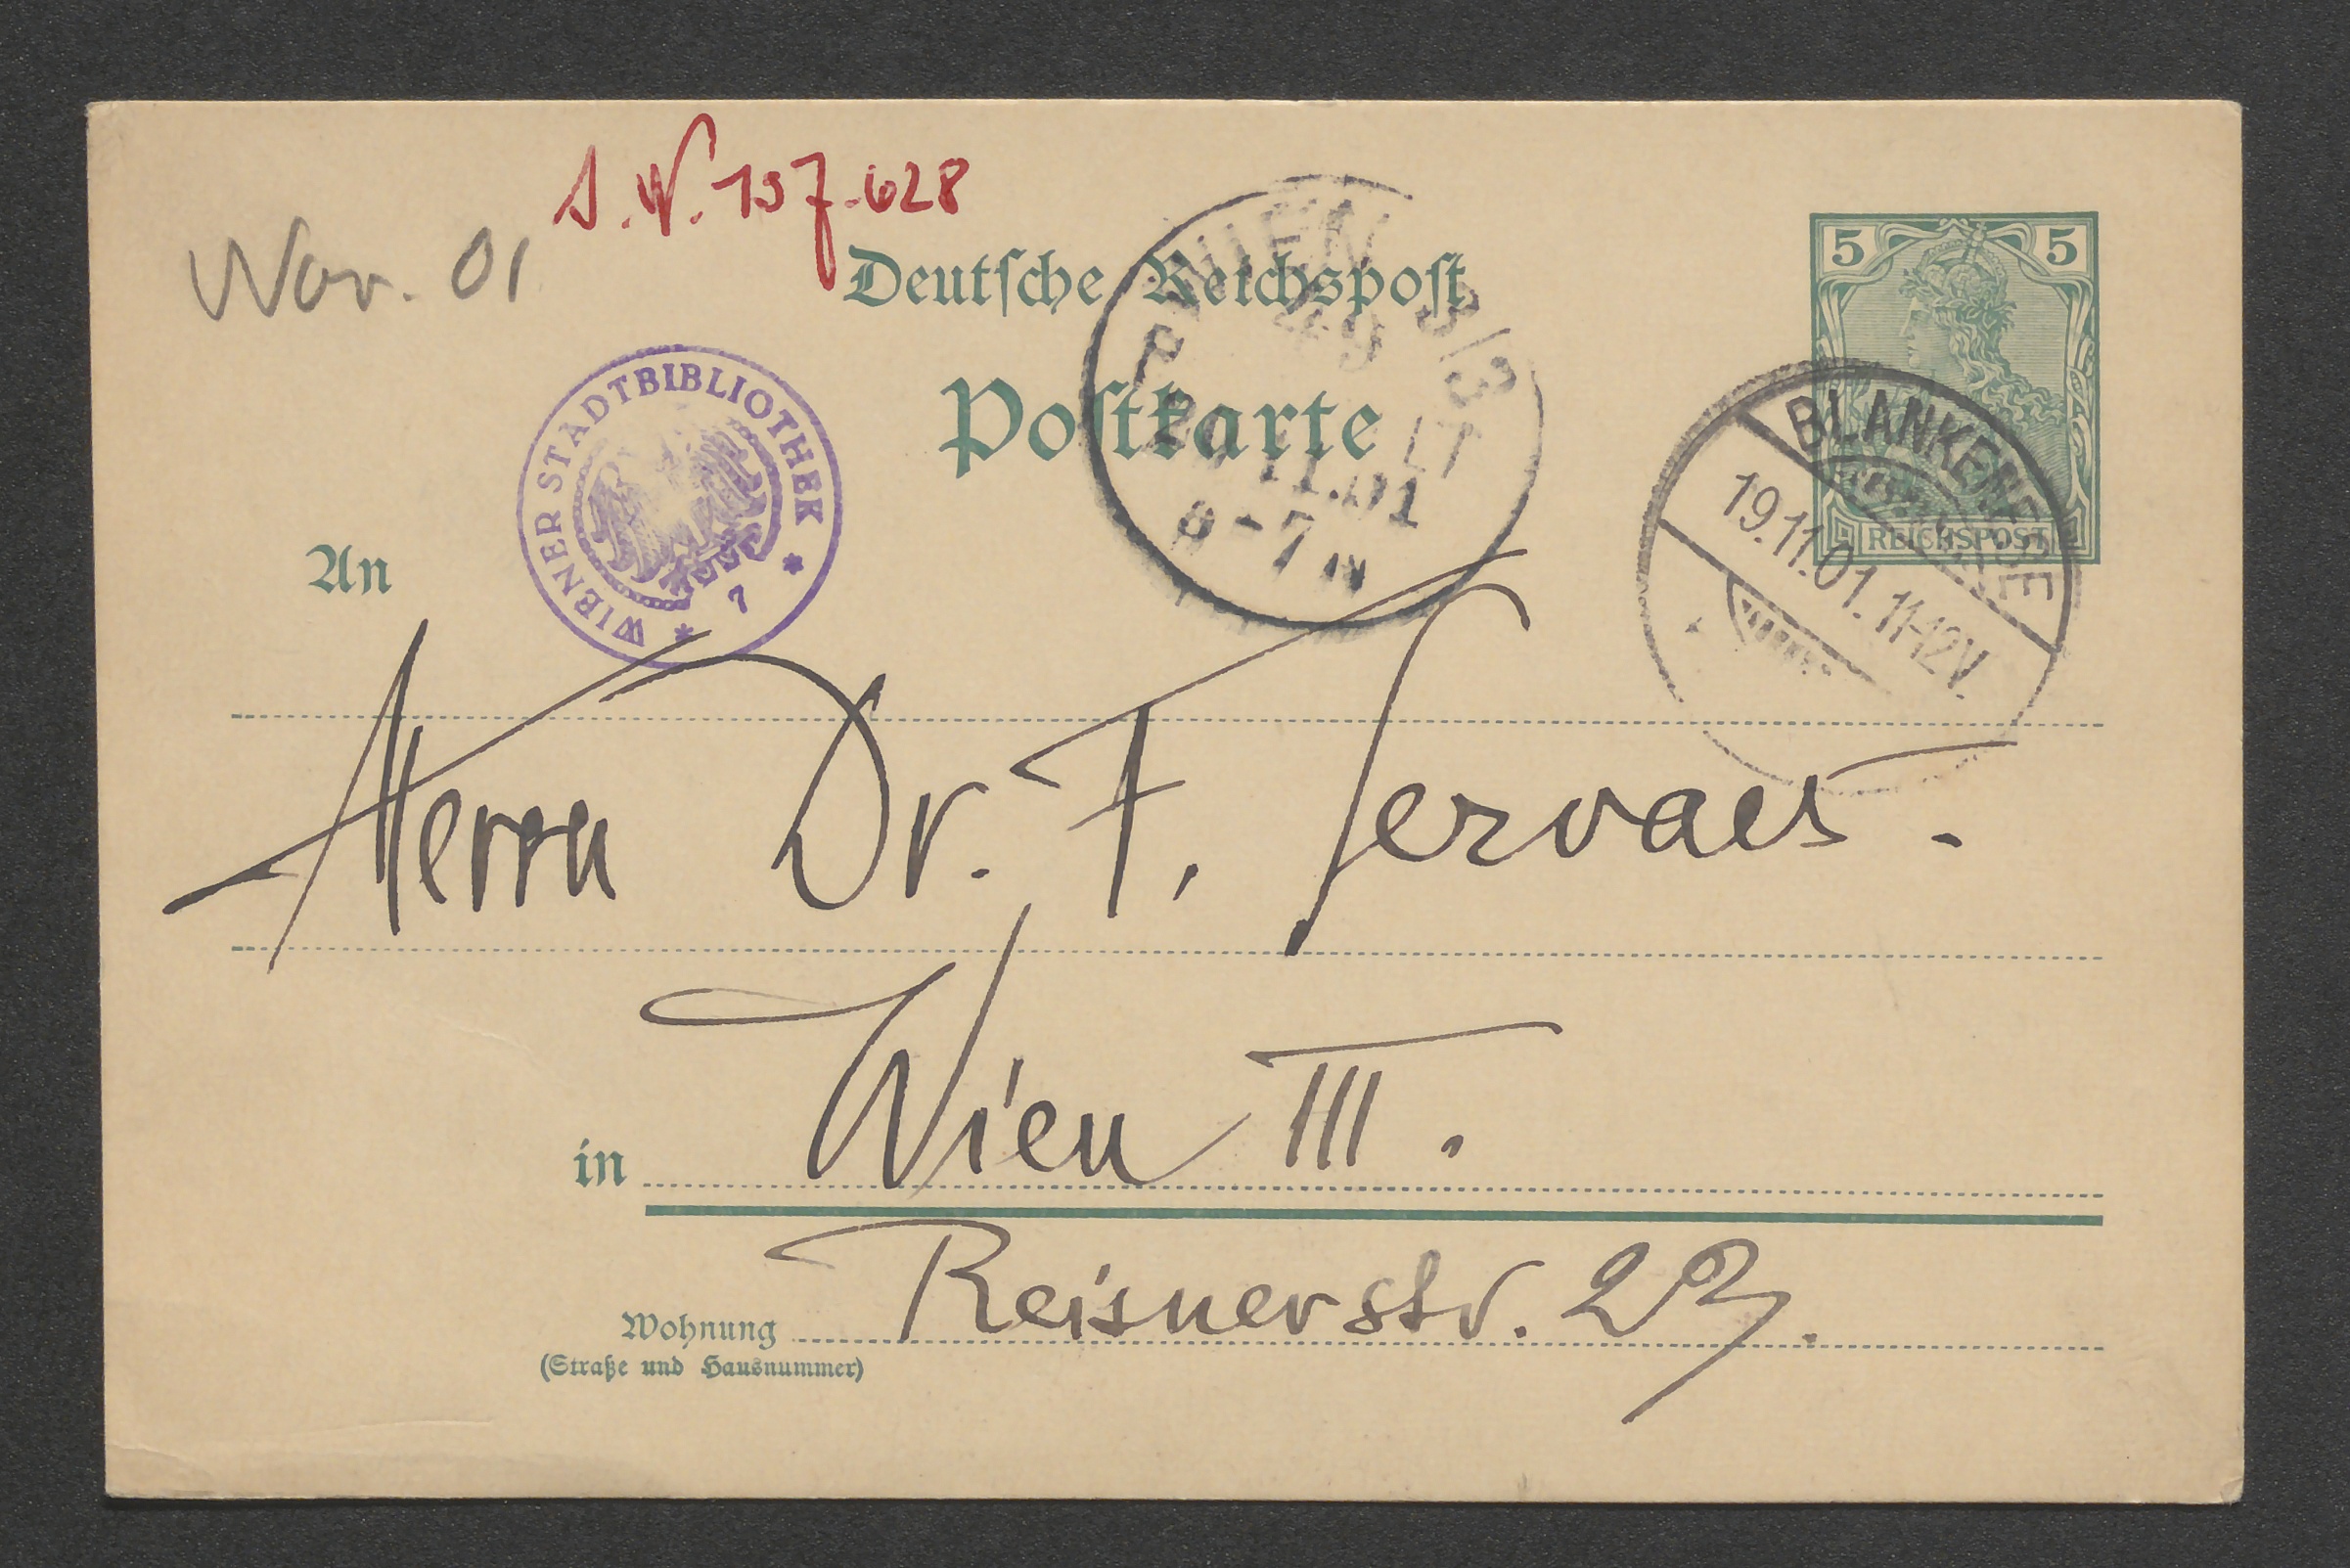 Nov. 01
I.N. 197.628
Deutſche Reichspoſt
Poſtkarte
5 5
REICHSPOST
WIEN 3/3
49
11.01
BLANKENESE
19.11.01. 11-12V.
WIENER STADTBIBLIOTHEK
* 7 *
An
Herrn Dr. F. Servaes.
in Wien III.
Wohnung Reisnerstr. 23.
(Straße und Hausnummer)